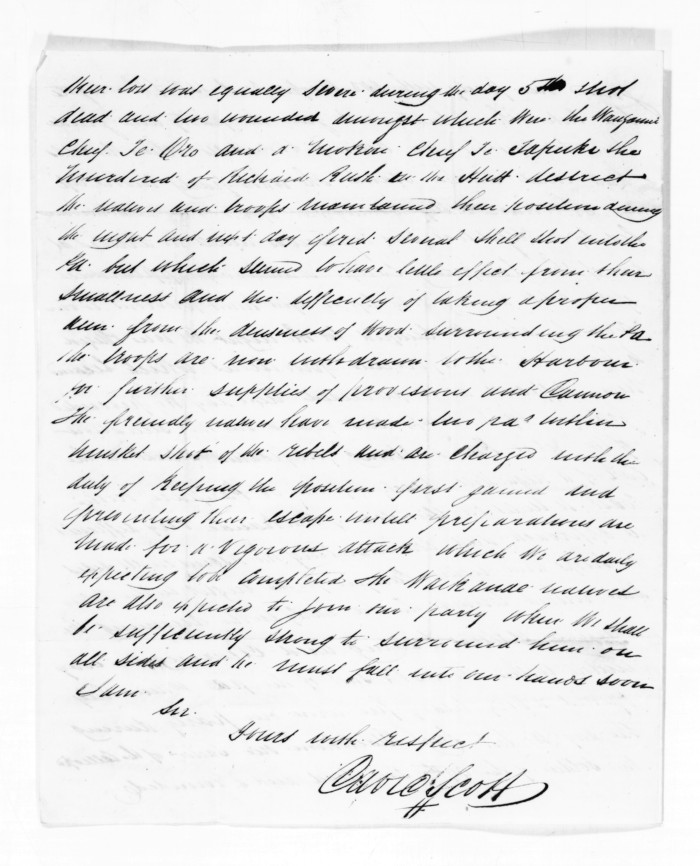 their loss was equally severe during the day 5 shot
dead and two wounded amongst which were the Wanganui
Chief Te Oro and a Chief Te Tapuke the
Murdered of Richard Rush in the Hutt district
the natives and troops maintained their position during
the night and next day fired several shell shot into the
Pa. but which seemed to have little effect from their
Smallness and the difficulty of taking a proper
aim from the denseness of Wood surrounding the Pa
the troops are now withdrawn to the Harbour
for further supplies of provisions and Cannon
The friendly natives have made two pas within
musket shot of the rebels and are Charged with the
duty of Keeping the position first gained and
preventing their escape untill preparations are
made for a Vigorous attack which we are daily
expecting to be completed the Waikanae natives
are also expected to join our party when We shall
be sufficiently strong to surround him on
all sides and he must fall into our hands soon
I am
Sir
Yours with respect
David Scott